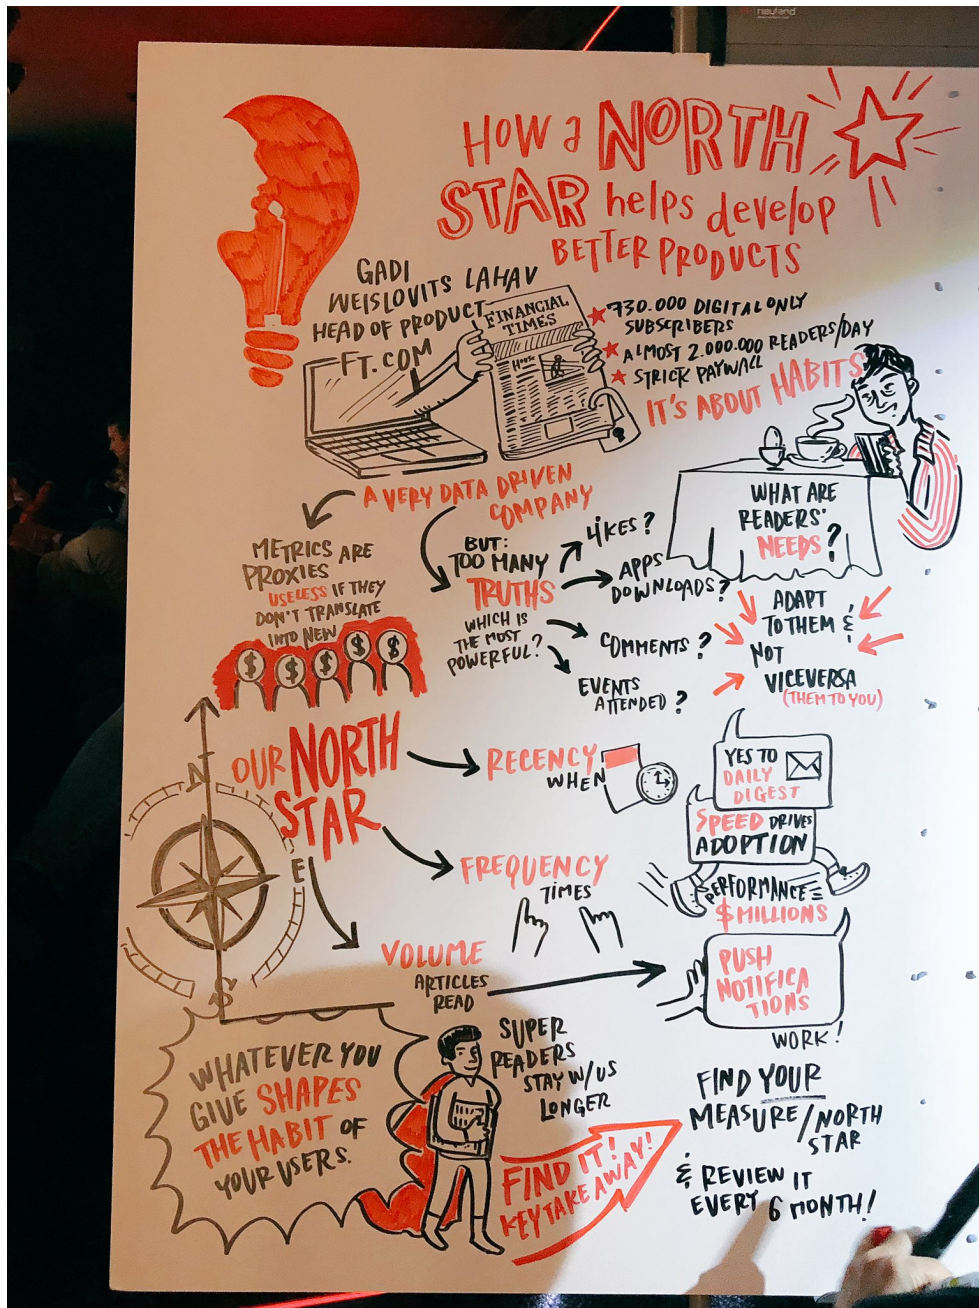 neuland
How a NORTH
STAR helps develop
BETTER PRODUCTS
GADI
WEISLOVITS LAHAV
HEAD OF PRODUCT
FT.COM
FINANCIAL
TIMES
HOUSE
730.000 DIGITAL ONLY
SUBSCRIBERS
ALMOST 2.000.000 READERS/DAY
STRICK PAYWALL
IT'S ABOUT HABITS
A VERY DATA DRIVEN
COMPANY
METRICS ARE
PROXIES
USELESS IF THEY
DON'T TRANSLATE
INTO NEW
$ $ $ $ $
BUT:
TOO MANY
TRUTHS
WHICH IS
THE MOST
POWERFUL?
LIKES?
APPS
DOWNLOADS?
COMMENTS?
EVENTS
ATTENDED?
WHAT ARE
READERS'
NEEDS?
ADAPT
TO THEM &
NOT
VICEVERSA
(THEM TO YOU)
OUR NORTH
STAR
N
E
S
RECENCY
WHEN
FREQUENCY
TIMES
VOLUME
ARTICLES
READ
YES TO
DAILY
DIGEST
SPEED DRIVES
ADOPTION
PERFORMANCE=
$ MILLIONS
PUSH
NOTIFICA
TIONS
WORK!
WHATEVER YOU
GIVE SHAPES
THE HABIT OF
YOUR USERS.
SUPER
READERS
STAY W/US
LONGER
FIND IT!
KEY TAKE AWAY!
FIND YOUR
MEASURE/NORTH
STAR
& REVIEW IT
EVERY 6 MONTH!